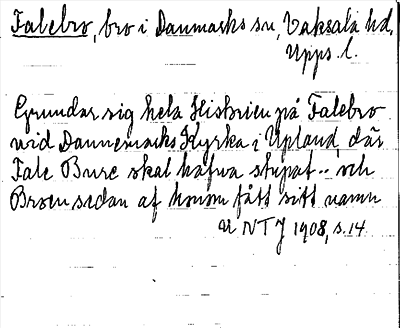 Falebro, bro i Danmarks sn, Vaksala hd,
Upps. l.
Grundar sig hela Historien på Falebro
wid Dannemarks Kyrka i Upland, där
Fale Bure skal hafwa stupat .. och
Broen sedan af honom fått sitt namn
U NTJ 1908, s. 14